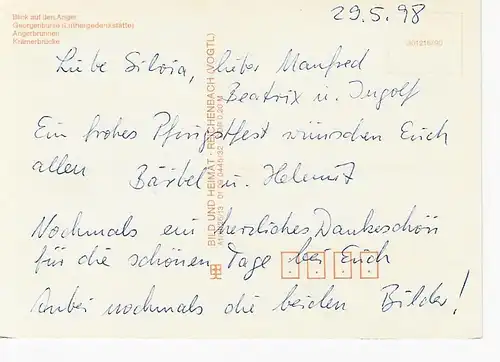 Blick auf den Anger
Georgenburse (Luthergedenkstätte)
Angerbrunnen
Krämerbrücke
29.5.98
Liebe Silvia, lieber Manfred
Beatrix u. Ingolf
Ein frohes Pfingstfest wünschen Euch
allen Bärbel u. Helmut
Nochmals ein herzliches Dankeschön
für die schönen Tage bei Euch
Anbei nochmals die beiden Bilder!
BILD UND HEIMAT · REICHENBACH (VOGTL)